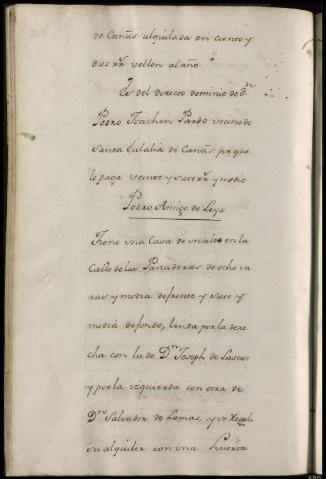 de Cañas alquilada en ciento y
diez rr. vellon al año
Es del directo dominio de dn
Pedro Joachin Pardo vecino de
Santa Eulalia de Cañas, por que
le paga veinte y siete rr. y medio
Pedro Amigo de Leys
Tiene una Casa de un alto en la
Calle de las Panaderas de ocho va
ras y media de frente y siete y
media de fondo, linda por la dere
cha con la de Dn Joseph de Lastres
y por la yzquierda con otra de
Dn Salvador de Lamas, y se
su alquiler con una Huerta